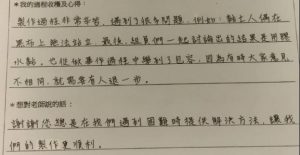 *我的過程收穫及心得：
製作過程非常辛苦，遇到了很多問題，例如：黏土人偶在
黑布上無法站立，最後，組員們一起討論出的結果是用膠
水黏，也從做事作過程中學到了包容，因為有時大家意見
不相同，就需要有人退一步。
*想對老師說的話：
謝謝您總是在我們遇到困難時提供解決方法，讓我
們的製作更順利。